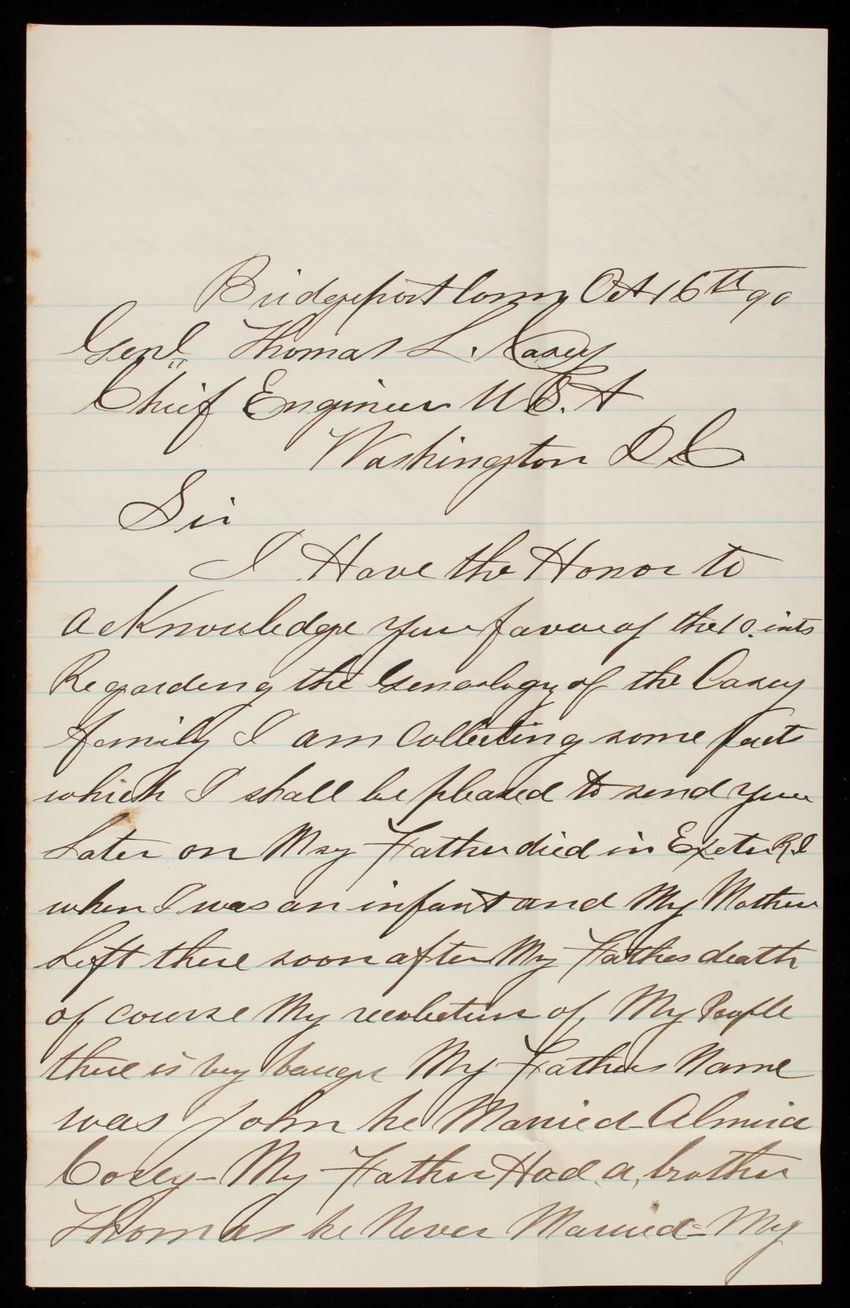 Bridgeport Conn Oct 16th 90
Genl Thomas L. Casey
Chief Engineer U.S.A
Washington D.C
Sir
I Have the Honor to
acknowledge your favor of the 10. ints
Regarding the Genealogy of the Casey
family I am Collecting some facts
which I shall be pleased to send you
Later on My Father died in Exeter R.I
when I was an infant and My Mother
Left there soon after My Fathers death
of course My recolection of My People
there is vey vauge My Fathers Name
was John he Married Almira
My Father Had a brother
Thomas he Never Married = My